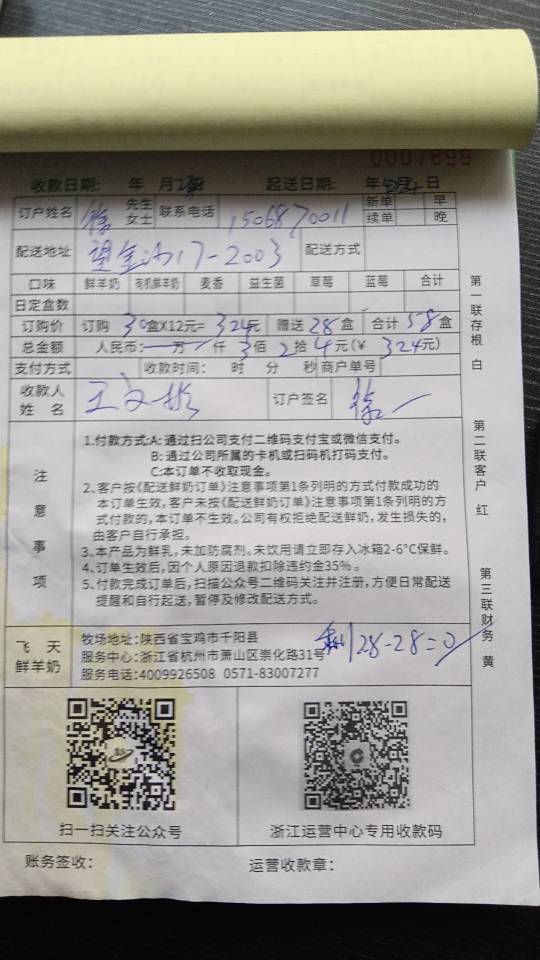 0007899
收款日期: 年 月 日 起送日期: 年 月 日
订户姓名 徐 先生 女士 联系电话 1506870011 新单 早 续单 晚
配送地址 17-2003 配送方式
口味 鲜羊奶 有机鲜羊奶 麦香 益生菌 草莓 蓝莓 合计
日定盒数
订购价 订购 30盒X12元= 324元 赠送 28 盒 合计 58 盒
总金额 人民币: 万 仟 3佰 2拾 4元(¥ 324元)
支付方式 收款时间: 时 分 秒 商户单号
收款人姓名 王文彬 订户签名 徐一
注意事项
1.付款方式:A: 通过扫公司支付二维码支付宝或微信支付。
B: 通过公司所属的卡机或扫码机打码支付。
C:本订单不收取现金。
2、客户按《配送鲜奶订单》注意事项第1条列明的方式付款成功的
本订单生效, 客户未按《配送鲜奶订单》注意事项第1条列明的方
式付款的, 本订单不生效。公司有权拒绝配送鲜奶, 发生损失的,
由客户自行承担。
3、本产品为鲜乳, 未加防腐剂。未饮用请立即存入冰箱2-6°C保鲜。
4、订单生效后, 因个人原因退款扣除违约金35%。
5、付款完成订单后, 扫描公众号二维码关注并注册, 方便日常配送
提醒和自行起送, 暂停及修改配送方式。
飞天鲜羊奶
牧场地址: 陕西省宝鸡市千阳县
服务中心: 浙江省杭州市萧山区崇化路31号
服务电话: 4009926508 0571-83007277
28-28=0
扫一扫关注公众号
浙江运营中心专用收款码
账务签收:
运营收款章:
第一联存根 白
第二联客户 红
第三联财务 黄